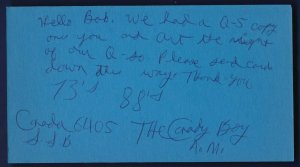 Hello Bob. We had a Q-5 copy
one you and Art the night
of our Q-so. Please send card
down this way. Thank-you
73's 88's
Canada 6405 The Candy Boy
SSB